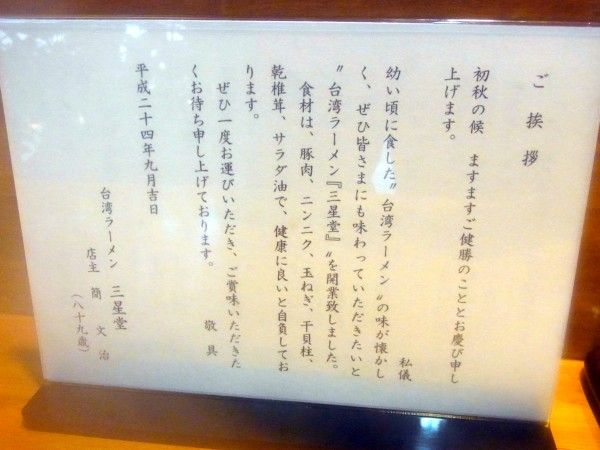 ご挨拶
初秋の候　ますますご健勝のこととお慶び申し
上げます。
私儀
幼い頃に食した〝台湾ラーメン〟の味が懐かし
く、ぜひ皆さまにも味わっていただきたいと
〝台湾ラーメン『三星堂』〟を開業致しました。
食材は、豚肉、ニンニク、玉ねぎ、干貝柱、
乾椎茸、サラダ油で、健康に良いと自負してお
ります。
ぜひ一度お運びいただき、ご賞味いただきた
くお待ち申し上げております。
敬具
平成二十四年九月吉日
台湾ラーメン　三星堂
店主　簡　文治
（八十九歳）